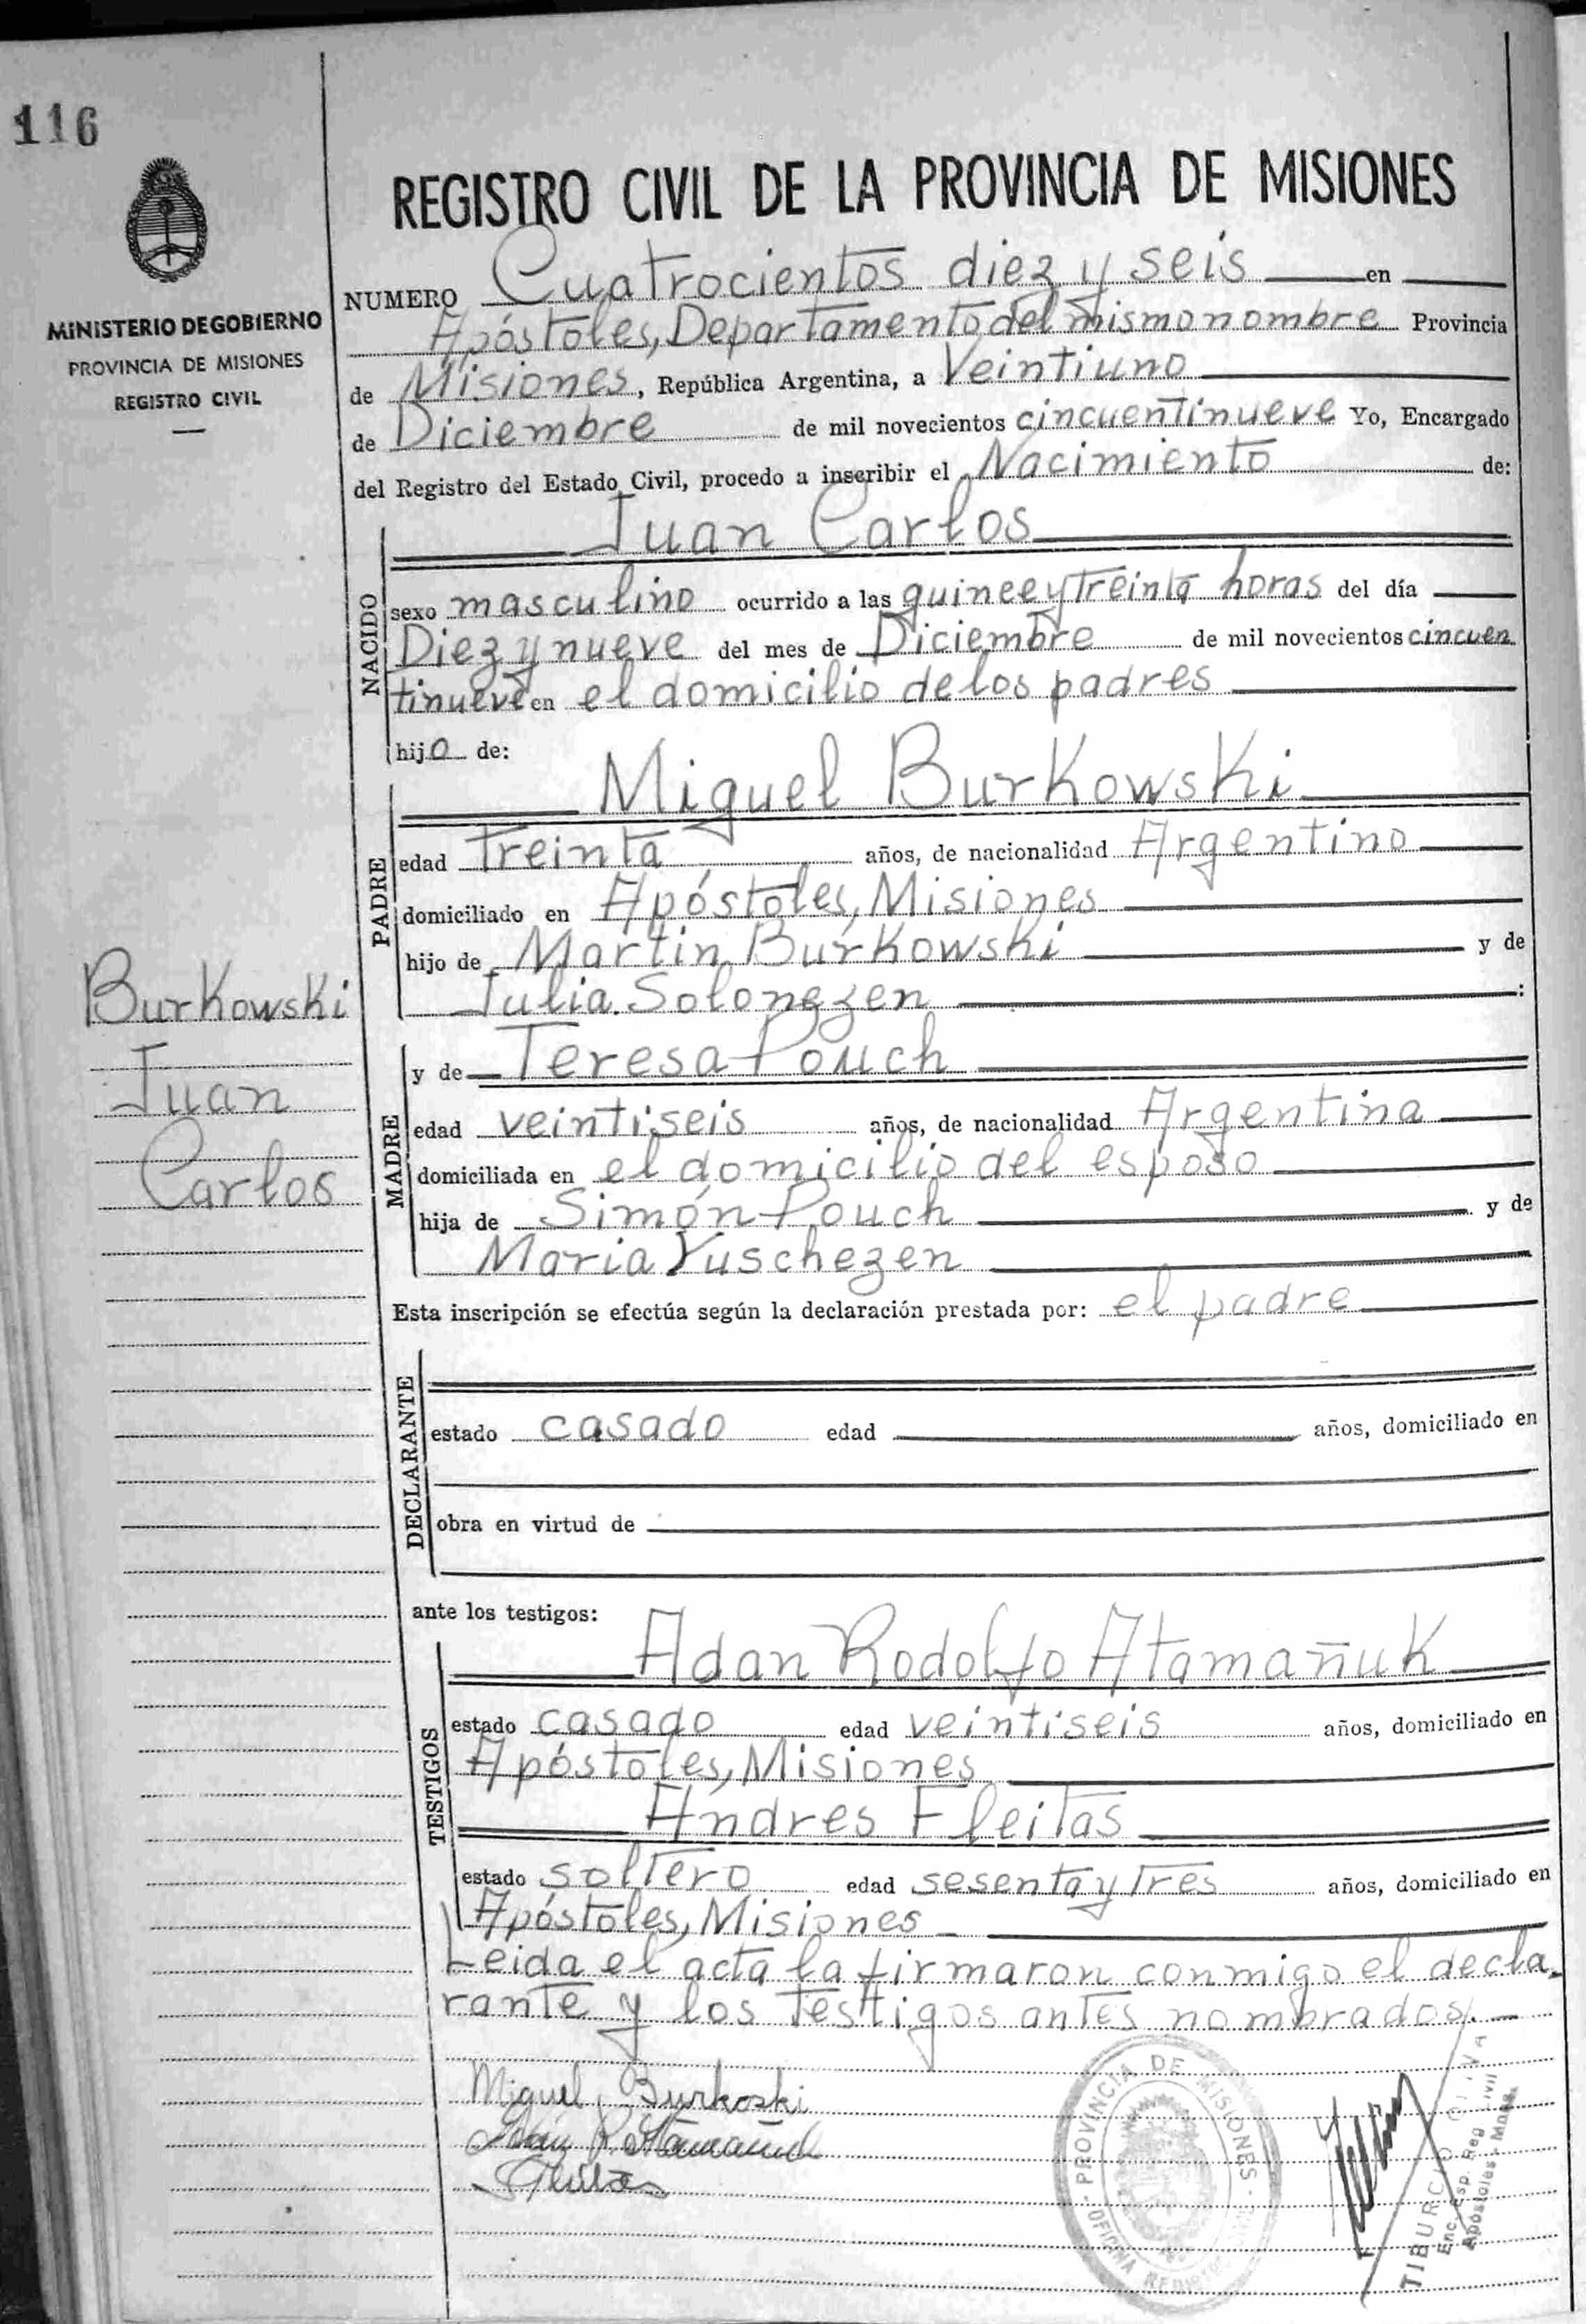 116
MINISTERIO DE GOBIERNO
PROVINCIA DE MISIONES
REGISTRO CIVIL
REGISTRO CIVIL DE LA PROVINCIA DE MISIONES
NUMERO Cuatrocientos diez y seis en
Apóstoles, Departamento del mismo nombre Provincia
de Misiones, República Argentina, a Veintiuno
de Diciembre de mil novecientos cincuentinueve Yo, Encargado
del Registro del Estado Civil, procedo a inscribir el Nacimiento de:
NACIDO
Juan Carlos
sexo masculino ocurrido a las quince y treinta horas del día
Diez y nueve del mes de Diciembre de mil novecientos cincuen
tinueve en el domicilio de los padres
hijo de:
PADRE
Miguel Burkowski
edad Treinta años, de nacionalidad Argentino
domiciliado en Apóstoles, Misiones
hijo de Martin Burkowski y de
Julia Solonezen :
Burkowski
Juan
Carlos
MADRE
y de Teresa Pouch
edad veintiseis años, de nacionalidad Argentina
domiciliada en el domicilio del esposo
hija de Simón Pouch y de
Maria Yuschezen
Esta inscripción se efectúa según la declaración prestada por: el padre
DECLARANTE
estado casado edad años, domiciliado en
obra en virtud de
ante los testigos:
TESTIGOS
Adan Rodolfo Atamañuk
estado casado edad veintiseis años, domiciliado en
Apóstoles, Misiones
Andres Fleitas
estado soltero edad sesenta y tres años, domiciliado en
Apóstoles, Misiones
Leida el acta la firmaron conmigo el decla
rante y los testigos antes nombrados.
Miguel Burkoski
PROVINCIA DE MISIONES
OFICINA REGISTRO CIVIL
TIBURCIO OLIVA
Enc. Esp. Reg. Civil
Apóstoles - Mnes.